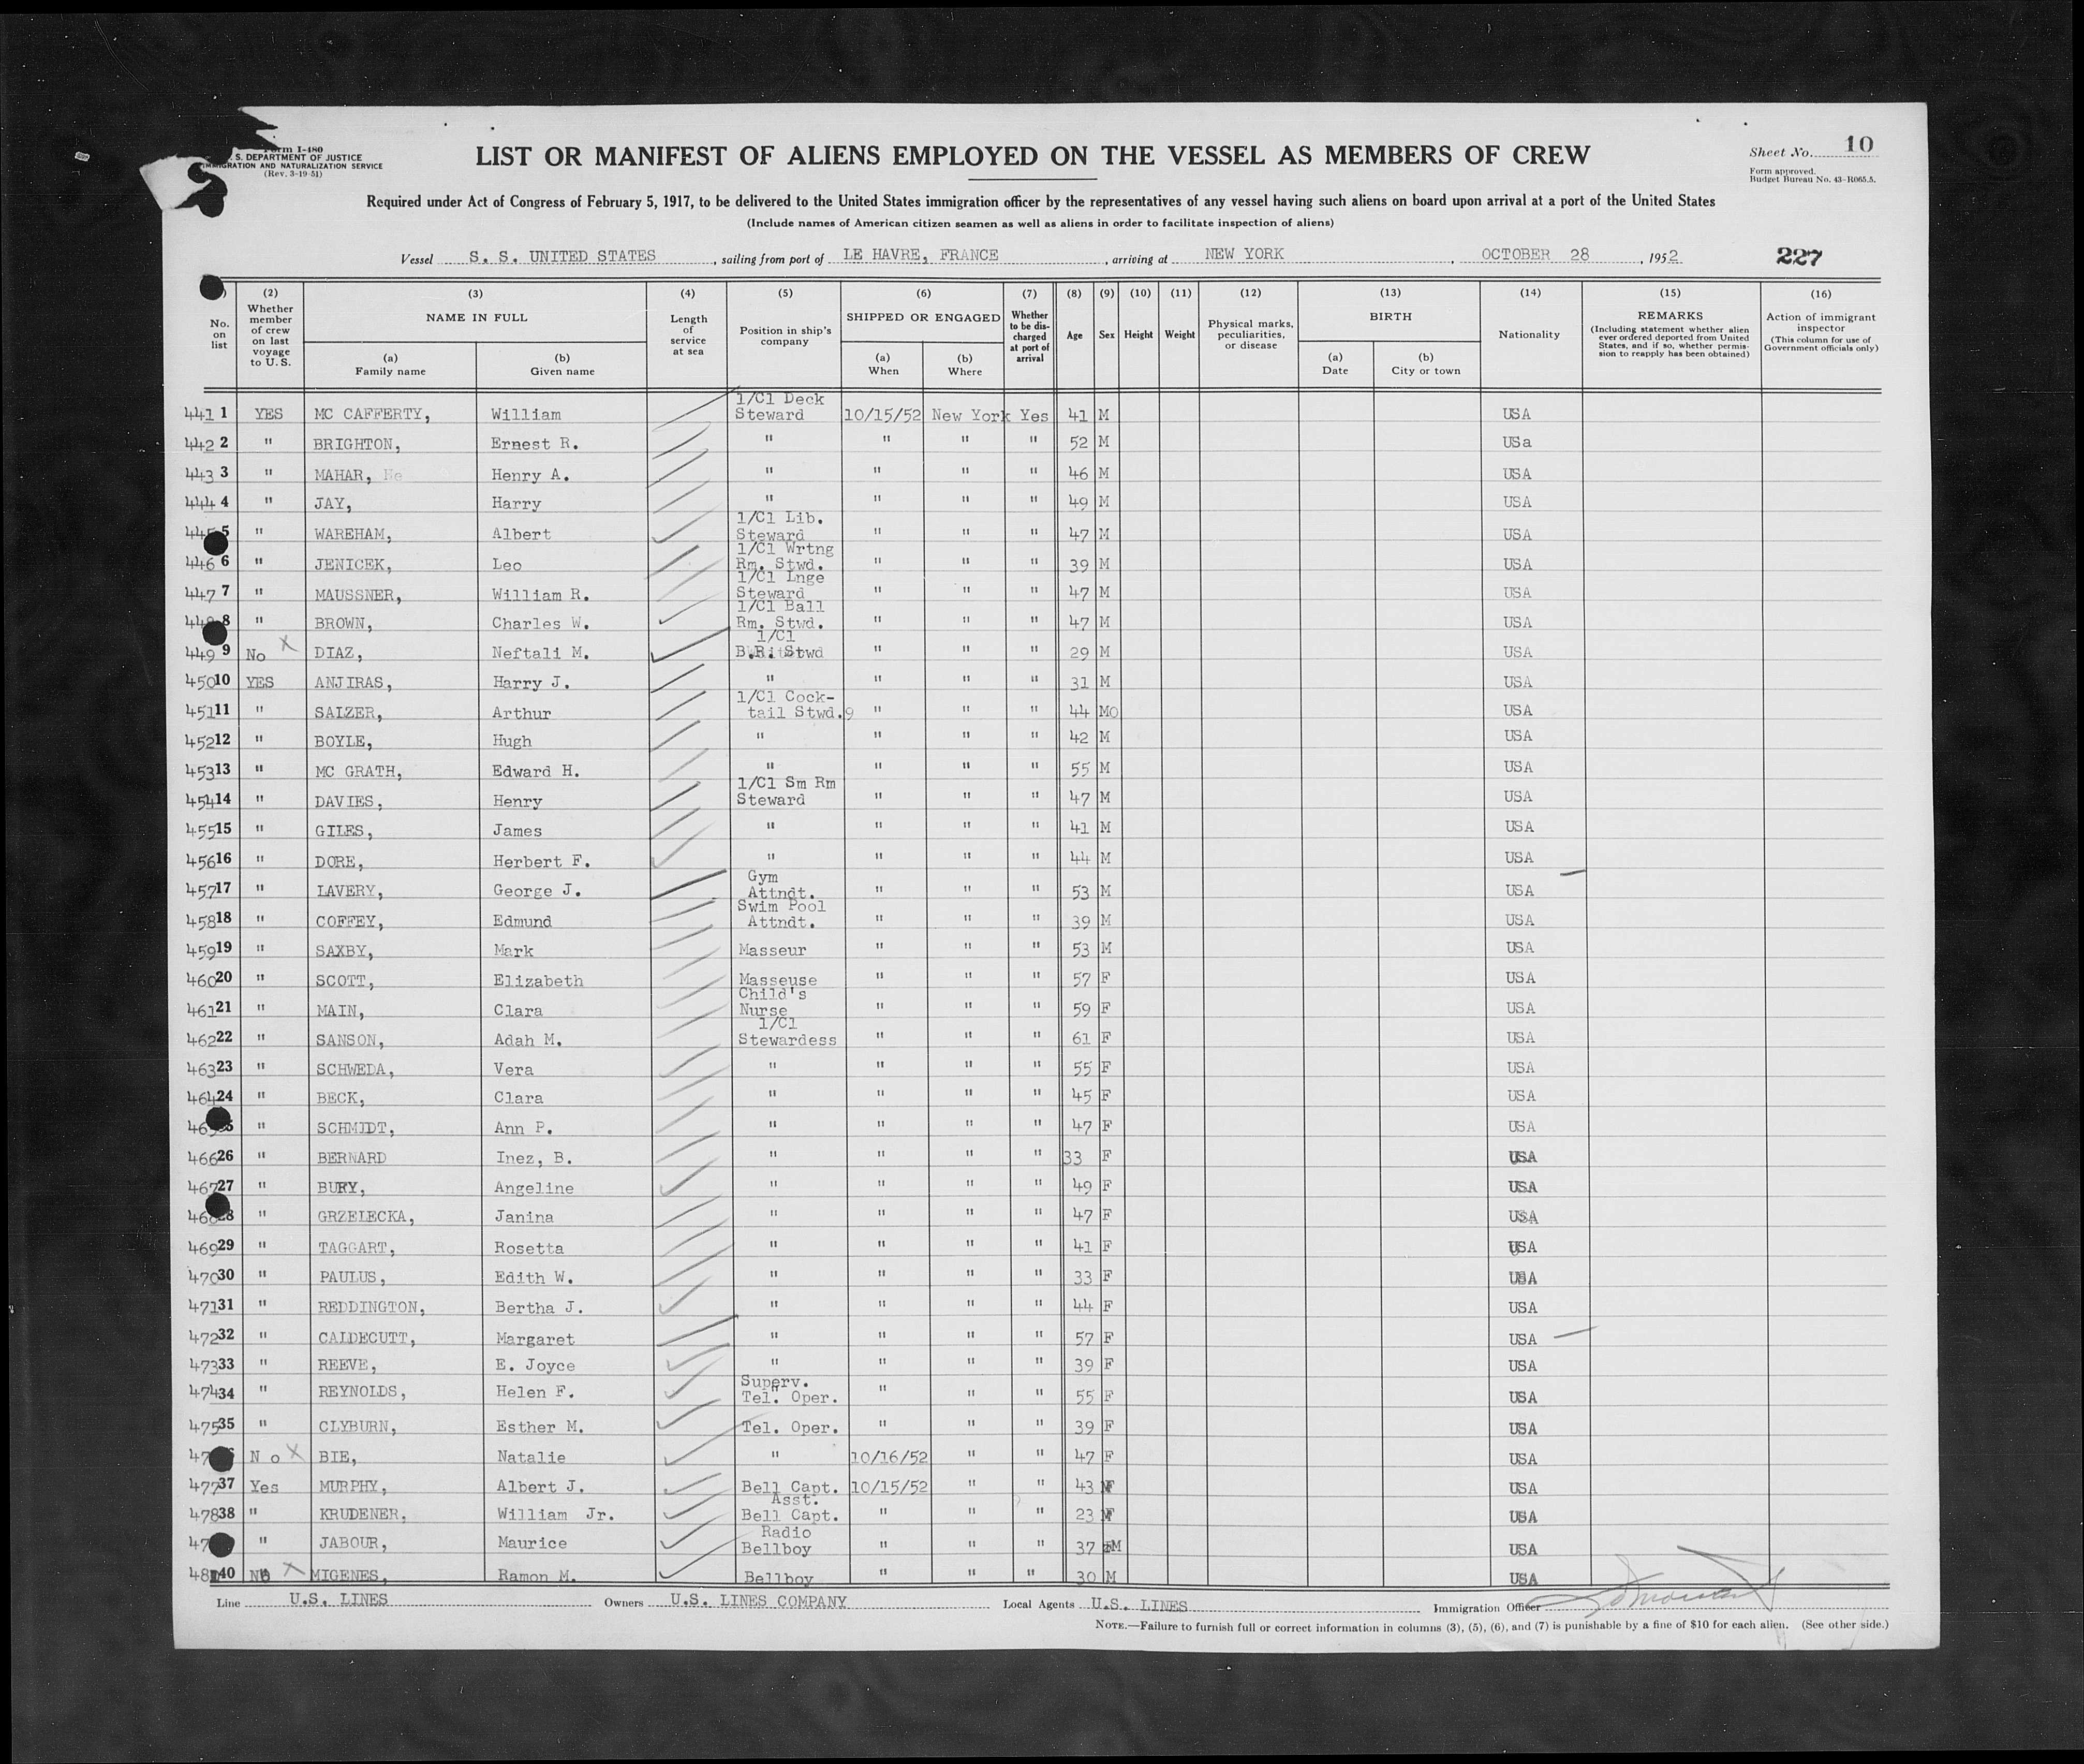 Form I-480
U. S. DEPARTMENT OF JUSTICE
IMMIGRATION AND NATURALIZATION SERVICE
(Rev. 3-19-51)
LIST OR MANIFEST OF ALIENS EMPLOYED ON THE VESSEL AS MEMBERS OF CREW
Sheet No. 10
Form approved.
Budget Bureau No. 43-R065.5.
Required under Act of Congress of February 5, 1917, to be delivered to the United States immigration officer by the representatives of any vessel having such aliens on board upon arrival at a port of the United States
(Include names of American citizen seamen as well as aliens in order to facilitate inspection of aliens)
Vessel S. S. UNITED STATES, sailing from port of LE HAVRE, FRANCE, arriving at NEW YORK, OCTOBER 28, 1952 227
No. on list (2) Whether member of crew on last voyage to U. S. (3) NAME IN FULL (a) Family name (b) Given name (4) Length of service at sea (5) Position in ship's company (6) SHIPPED OR ENGAGED (a) When (b) Where (7) Whether to be discharged at port of arrival (8) Age (9) Sex (10) Height (11) Weight (12) Physical marks, peculiarities, or disease (13) BIRTH (a) Date (b) City or town (14) Nationality (15) REMARKS (Including statement whether alien ever ordered deported from United States, and if so, whether permission to reapply has been obtained) (16) Action of immigrant inspector (This column for use of Government officials only)
441 1 YES MC CAFFERTY, William 1/Cl Deck Steward 10/15/52 New York Yes 41 M USA
442 2 " BRIGHTON, Ernest R. " " " " 52 M USa
443 3 " MAHAR, He Henry A. " " " " 46 M USA
444 4 " JAY, Harry " " " " 49 M USA
445 5 " WAREHAM, Albert 1/Cl Lib. Steward " " " 47 M USA
446 6 " JENICEK, Leo 1/Cl Wrtng Rm. Stwd. " " " 39 M USA
447 7 " MAUSSNER, William R. 1/Cl Lnge Steward " " " 47 M USA
448 8 " BROWN, Charles W. 1/Cl Ball Rm. Stwd. " " " 47 M USA
449 9 No X DIAZ, Neftali M. 1/Cl B.R. Stwd " " " 29 M USA
450 10 YES ANJIRAS, Harry J. " " " " 31 M USA
451 11 " SALZER, Arthur 1/Cl Cock-tail Stwd.9 " " " 44 MO USA
452 12 " BOYLE, Hugh " " " " 42 M USA
453 13 " MC GRATH, Edward H. " " " " 55 M USA
454 14 " DAVIES, Henry 1/Cl Sm Rm Steward " " " 47 M USA
455 15 " GILES, James " " " " 41 M USA
456 16 " DORE, Herbert F. " " " " 44 M USA
457 17 " LAVERY, George J. Gym Attndt. " " " 53 M USA
458 18 " COFFEY, Edmund Swim Pool Attndt. " " " 39 M USA
459 19 " SAXBY, Mark Masseur " " " 53 M USA
460 20 " SCOTT, Elizabeth Masseuse " " " 57 F USA
461 21 " MAIN, Clara Child's Nurse " " " 59 F USA
462 22 " SANSON, Adah M. 1/Cl Stewardess " " " 61 F USA
463 23 " SCHWEDA, Vera " " " " 55 F USA
464 24 " BECK, Clara " " " " 45 F USA
465 " SCHMIDT, Ann P. " " " " 47 F USA
466 26 " BERNARD Inez, B. " " " " 33 F USA
467 27 " BURY, Angeline " " " " 49 F USA
468 28 " GRZELECKA, Janina " " " " 47 F USA
469 29 " TAGGART, Rosetta " " " " 41 F USA
470 30 " PAULUS, Edith W. " " " " 33 F USA
471 31 " REDDINGTON, Bertha J. " " " " 44 F USA
472 32 " CALDECUTT, Margaret " " " " 57 F USA
473 33 " REEVE, E. Joyce " " " " 39 F USA
474 34 " REYNOLDS, Helen F. Superv. Tel. Oper. " " " 55 F USA
475 35 " CLYBURN, Esther M. Tel. Oper. " " " 39 F USA
47 No X BIE, Natalie " 10/16/52 " " 47 F USA
477 37 Yes MURPHY, Albert J. Bell Capt. 10/15/52 " " 43 M USA
478 38 " KRUDENER, William Jr. Asst. Bell Capt. " " " 23 M USA
47 " JABOUR, Maurice Radio Bellboy " " " 37 M USA
480 40 No X MIGENES, Ramon M. Bellboy " " " 30 M USA
Line U.S. LINES Owners U.S. LINES COMPANY Local Agents U.S. LINES Immigration Officer
NOTE.—Failure to furnish full or correct information in columns (3), (5), (6), and (7) is punishable by a fine of $10 for each alien. (See other side.)